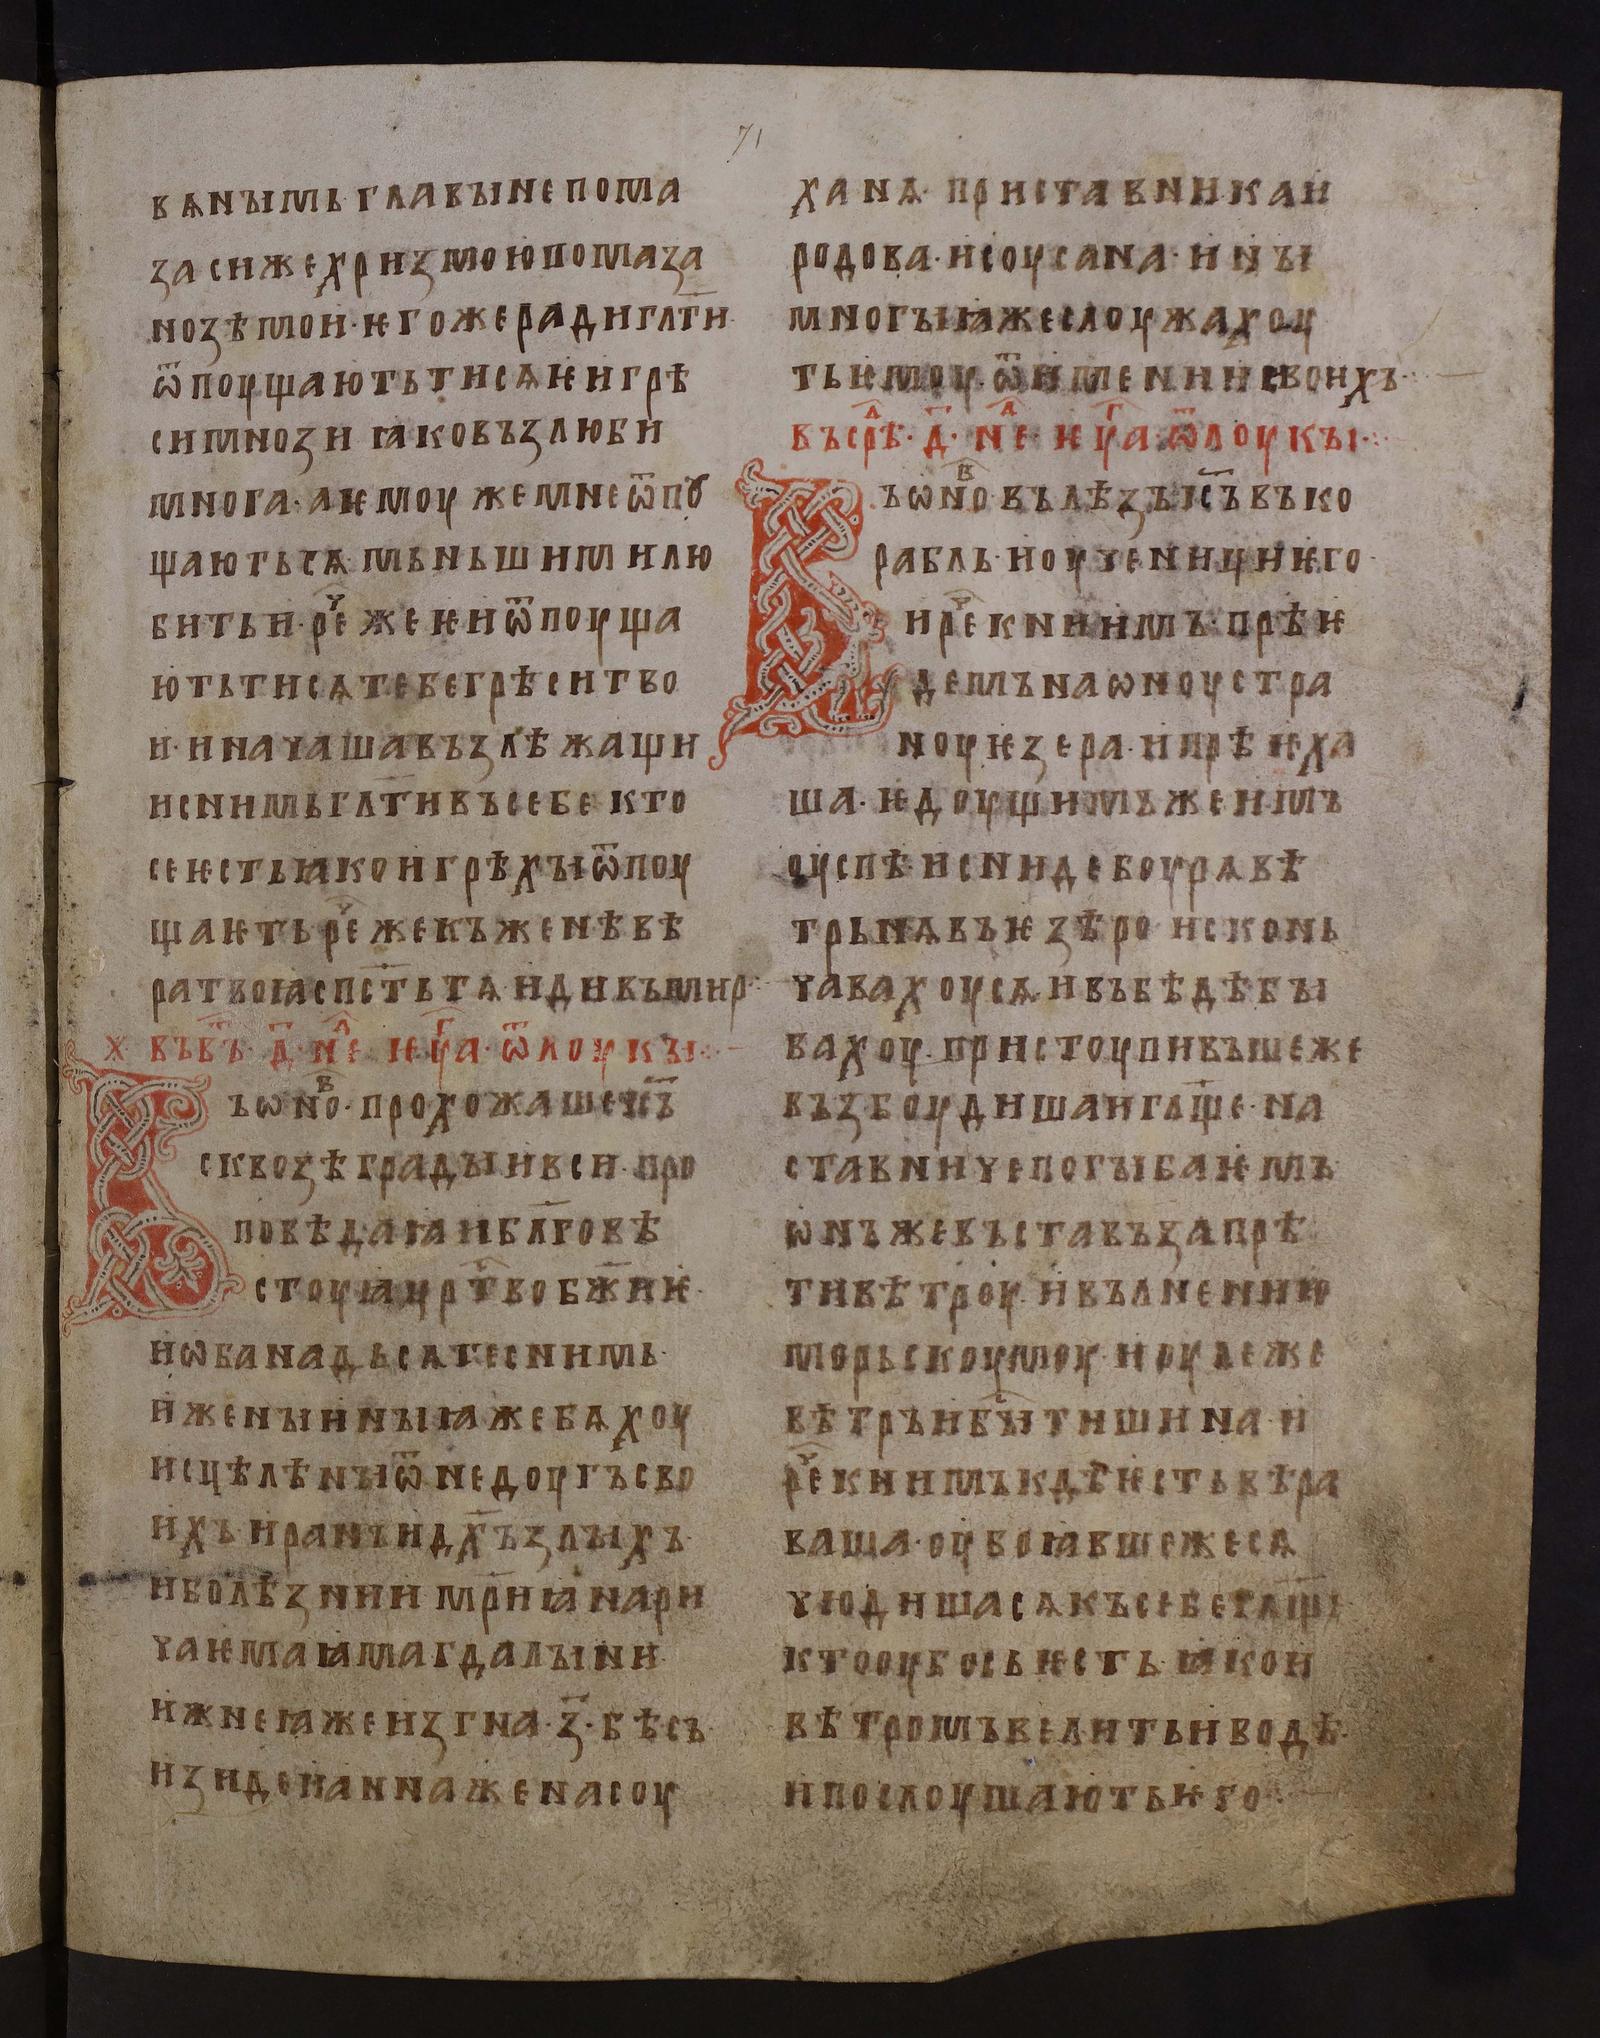 71
вѧнымь главы не пома
за си же хризмою помаза
нозѣ мои· ѥгоже ради гл҃ти
ѿпоущають ти сѧ ѥи грѣ
си мнози ꙗко възлюби
многа· а ѥмоу же мне ѿпꙋ
щають сѧ мьньшими лю
бить и· рч҃е же ѥи ѿпоуща
ють ти сѧ тебе грѣси тво
и· и начаша възлѣжащи
и с нимь гл҃ти въ себе кто
се ѥсть ꙗко и грѣхы ѿпоу
щаѥть рч҃е же къ женѣ вѣ
ра твоꙗ сп҃сть тѧ иди въ мир·
х въ в҃ъ· д҃· нл҃е ѥуг҃а· ѿ лоукы·
Въ ѡно в҃· прохожаше ис҃ъ
сквозѣ грады и вси· про
повѣдаꙗ и бл҃говѣ
стоуꙗ цр҃тво бж҃иѥ·
и ѡба на дьсѧте с нимь·
и жены ины ꙗже бѧхоу
исцѣлѣны ѿ недоугъ сво
ихъ и ранъ и дх҃ъ злыхъ·
и болѣзнии мр҃иꙗ нари
чаѥмаꙗ магдалыни·
иж неꙗ же изгна· з҃· бѣсъ·
изиде иꙗнна жена соу
ханѧ· приставника и
родова· и соусана· и ны
многыꙗ же слоужахоу
ть ѥмоу· ѿ имении своихъ·
въ срд҃ѣ· д҃· нл҃е· ѥуг҃а· ѿ лоукы·
Въ ѡно в҃· вълѣзъ ис҃ъ въ ко
рабль· и оученици ѥго·
и рч҃е к ним имъ· прѣѥ
демъ на ѡноу стра
ноу ѥзера· и прѣѥха
ша· ѥдоущимъ же имъ
оуспѣ и сниде боурѧ вѣ
трьнѧ въ ѥзѣро и сконь
чавахоу сѧ и въ бѣдѣ бы
вахоу· пристоупивъше же
възбоудиша и гл҃ще· на
ставниче погыбаѥмъ·
ѡнъ же въставъ запрѣ
ти вѣтроу· и вълнению
морьскоумоу· и оулеже
вѣтръ и бы҃ тишина· и
рч҃е к ним къдѣ ѥсть вѣра
ваша· оубоꙗвше же сѧ
чюдиша сѧ къ себе гл҃ще
кто оубо сь ѥсть· ꙗко и
вѣтромъ велить и водѣ·
и послоушають ѥго·